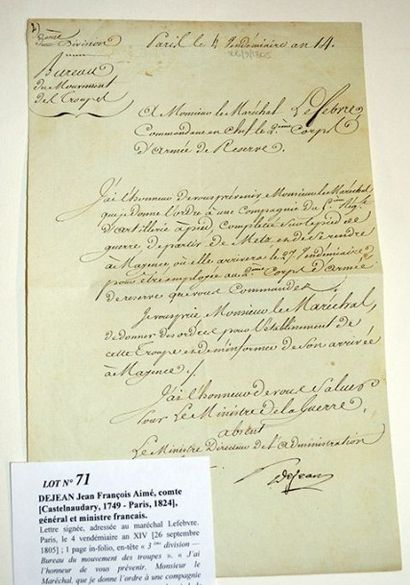 3ème Division
Bureau
du Mouvement
des Troupes
Paris le 4 Vendémiaire an 14.
26/9/1805
A Monsieur le Maréchal Lefebvre
Commandant en Chef le 2ème Corps
d'Armée de Réserve.
J'ai l'honneur de vous prévenir, Monsieur le Maréchal
que je donne l'ordre à une Compagnie du 6.me Rég.t
d'Artillerie à pied complettée sur le pied de
guerre de partir de Metz et de se rendre
à Mayence où elle arrivera le 27 Vendémiaire
pour être employée au 2ème Corps d'Armée
de réserve que vous Commandez.
Je vous prie Monsieur le Maréchal,
de donner des ordres pour l'établissement de
cette Troupe et de m'informer de son arrivée
à Mayence.
J'ai l'honneur de vous saluer
Pour Le Ministre de la Guerre,
absent
Le Ministre Directeur de l'administration
Dejean
LOT N° 71
DEJEAN Jean François Aimé, comte
[Castelnaudary, 1749 - Paris, 1824],
général et ministre francais.
Lettre signée, adressée au maréchal Lefebvre.
Paris, le 4 vendémiaire an XIV [26 septembre
1805] ; 1 page in-folio, en-tête « 3 ème division —
Bureau du mouvement des troupes ». « J'ai
l'honneur de vous prévenir. Monsieur le
Maréchal, que je donne l'ordre à une compagnie